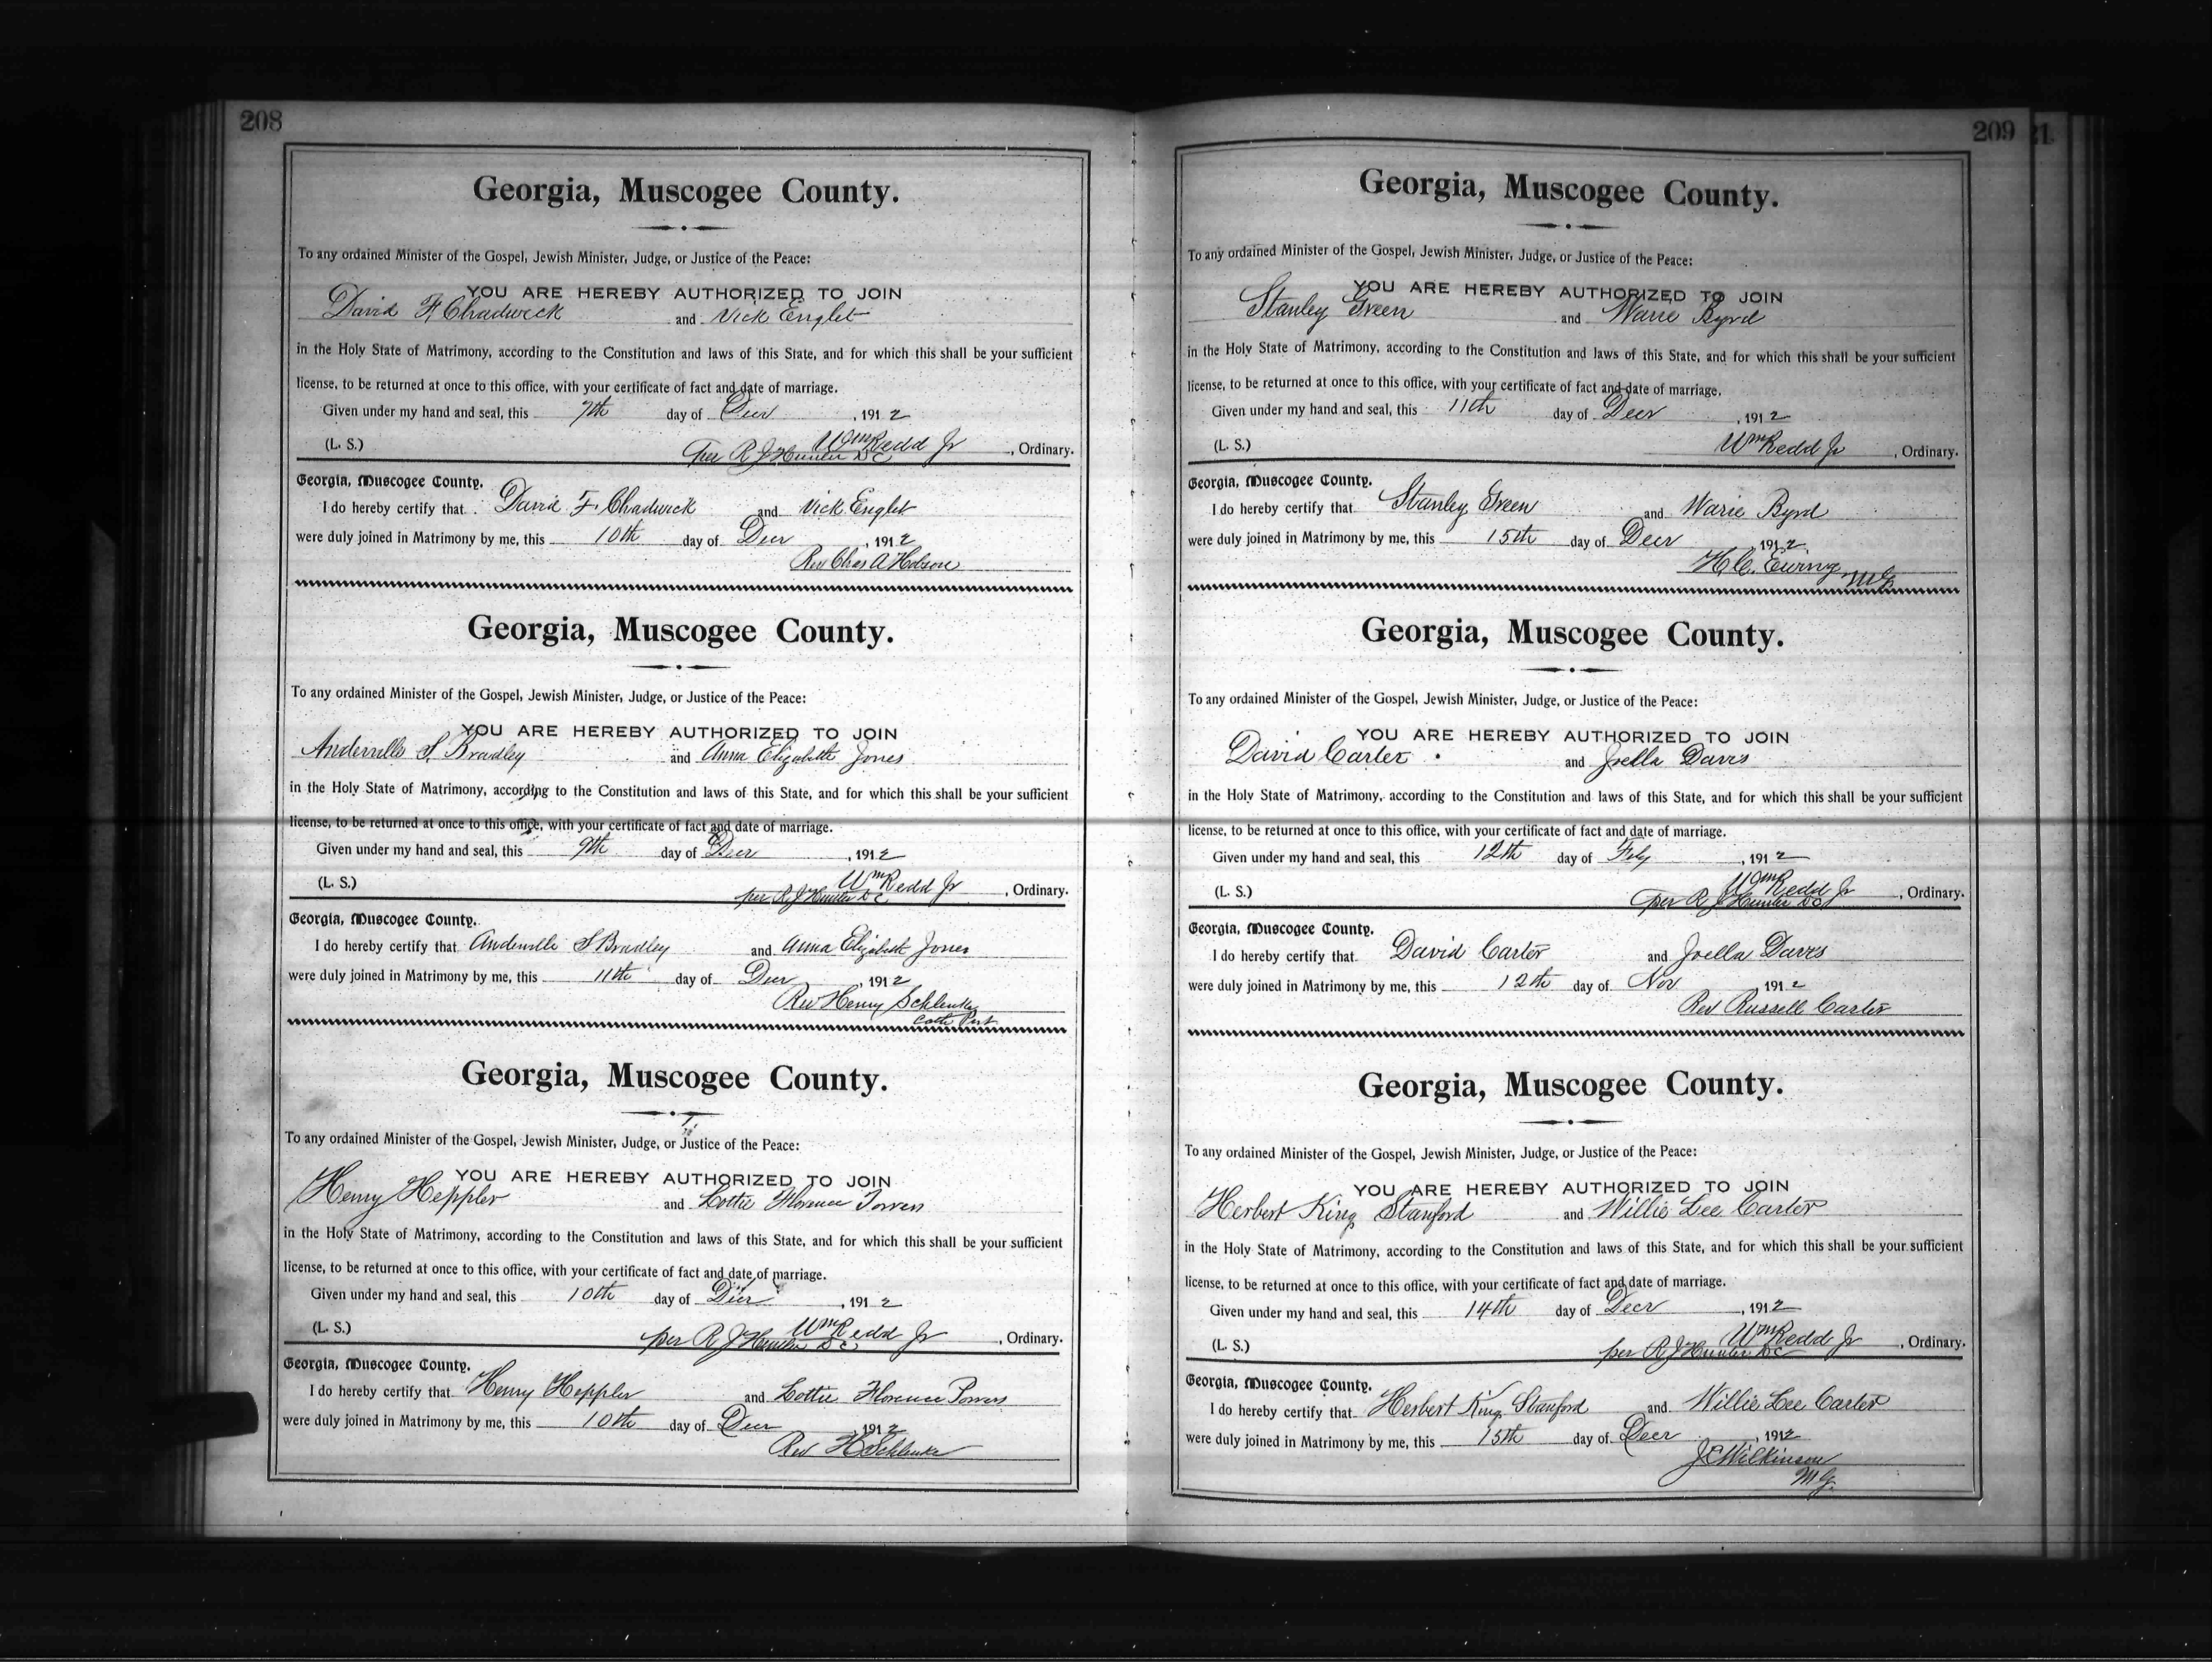 208
Georgia, Muscogee County.
To any ordained Minister of the Gospel, Jewish Minister, Judge, or Justice of the Peace:
YOU ARE HEREBY AUTHORIZED TO JOIN
David F. Chadwick and Vick Englet
in the Holy State of Matrimony, according to the Constitution and laws of this State, and for which this shall be your sufficient
license, to be returned at once to this office, with your certificate of fact and date of marriage.
Given under my hand and seal, this 7th day of Decr , 1912
(L. S.) Wm Redd Jr , Ordinary.
per R J Hunter DC
Georgia, Muscogee County.
I do hereby certify that David F. Chadwick and Vick Englet
were duly joined in Matrimony by me, this 10th day of Decr , 1912
Rev Chas A Hobson
Georgia, Muscogee County.
To any ordained Minister of the Gospel, Jewish Minister, Judge, or Justice of the Peace:
YOU ARE HEREBY AUTHORIZED TO JOIN
Anderville S. Bradley and Anna Elizabeth Jones
in the Holy State of Matrimony, according to the Constitution and laws of this State, and for which this shall be your sufficient
license, to be returned at once to this office, with your certificate of fact and date of marriage.
Given under my hand and seal, this 9th day of Decr , 1912
(L. S.) Wm Redd Jr , Ordinary.
per R J Hunter DC
Georgia, Muscogee County.
I do hereby certify that Anderville S Bradley and Anna Elizabeth Jones
were duly joined in Matrimony by me, this 11th day of Decr , 1912
Rev Henry Schlenke
Cath
Georgia, Muscogee County.
To any ordained Minister of the Gospel, Jewish Minister, Judge, or Justice of the Peace:
YOU ARE HEREBY AUTHORIZED TO JOIN
Henry Heppler and Lottie Florence
in the Holy State of Matrimony, according to the Constitution and laws of this State, and for which this shall be your sufficient
license, to be returned at once to this office, with your certificate of fact and date of marriage.
Given under my hand and seal, this 10th day of Decr , 1912
(L. S.) Wm Redd Jr , Ordinary.
per R J Hunter DC
Georgia, Muscogee County.
I do hereby certify that Henry Heppler and Lottie Florence Powers
were duly joined in Matrimony by me, this 10th day of Decr 1912
Rev H Schlenke
209
21
Georgia, Muscogee County.
To any ordained Minister of the Gospel, Jewish Minister, Judge, or Justice of the Peace:
YOU ARE HEREBY AUTHORIZED TO JOIN
Stanley Green and Warie Byrd
in the Holy State of Matrimony, according to the Constitution and laws of this State, and for which this shall be your sufficient
license, to be returned at once to this office, with your certificate of fact and date of marriage.
Given under my hand and seal, this 11th day of Decr , 1912
(L. S.) Wm Redd Jr , Ordinary.
Georgia, Muscogee County.
I do hereby certify that Stanley Green and Warie Byrd
were duly joined in Matrimony by me, this 15th day of Decr , 1912
H. C. Ewing
MG
Georgia, Muscogee County.
To any ordained Minister of the Gospel, Jewish Minister, Judge, or Justice of the Peace:
YOU ARE HEREBY AUTHORIZED TO JOIN
David Carter and Joella Davis
in the Holy State of Matrimony, according to the Constitution and laws of this State, and for which this shall be your sufficient
license, to be returned at once to this office, with your certificate of fact and date of marriage.
Given under my hand and seal, this 12th day of Feby , 1912
(L. S.) Wm Redd Jr , Ordinary.
per R J Hunter DC
Georgia, Muscogee County.
I do hereby certify that David Carter and Joella Davis
were duly joined in Matrimony by me, this 12th day of Nov , 1912
Rev Russell Carter
Georgia, Muscogee County.
To any ordained Minister of the Gospel, Jewish Minister, Judge, or Justice of the Peace:
YOU ARE HEREBY AUTHORIZED TO JOIN
Herbert King Stanford and Willie Lee Carter
in the Holy State of Matrimony, according to the Constitution and laws of this State, and for which this shall be your sufficient
license, to be returned at once to this office, with your certificate of fact and date of marriage.
Given under my hand and seal, this 14th day of Decr , 1912
(L. S.) Wm Redd Jr , Ordinary.
per R J Hunter DC
Georgia, Muscogee County.
I do hereby certify that Herbert King Stanford and Willie Lee Carter
were duly joined in Matrimony by me, this 15th day of Decr , 1912
J E Wilkinson
M G.